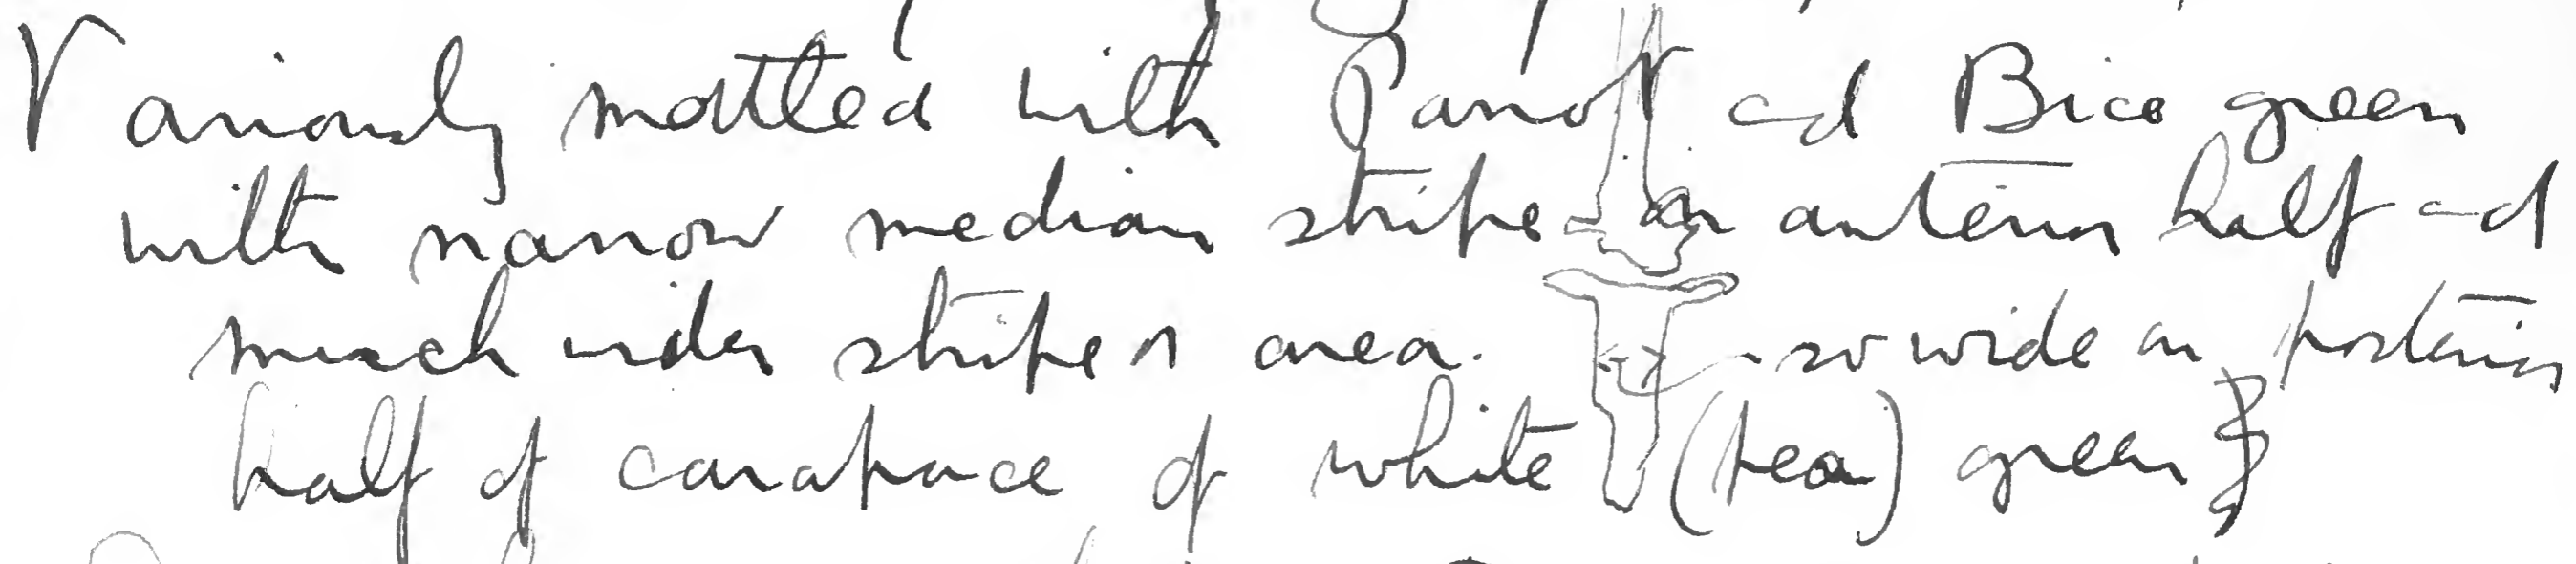 Variously mottled with Parrot and Bice green
with narrow median stripe on anterior half and
much wider stripe or area. so wide on posterior
half of carapace of white (pea) green